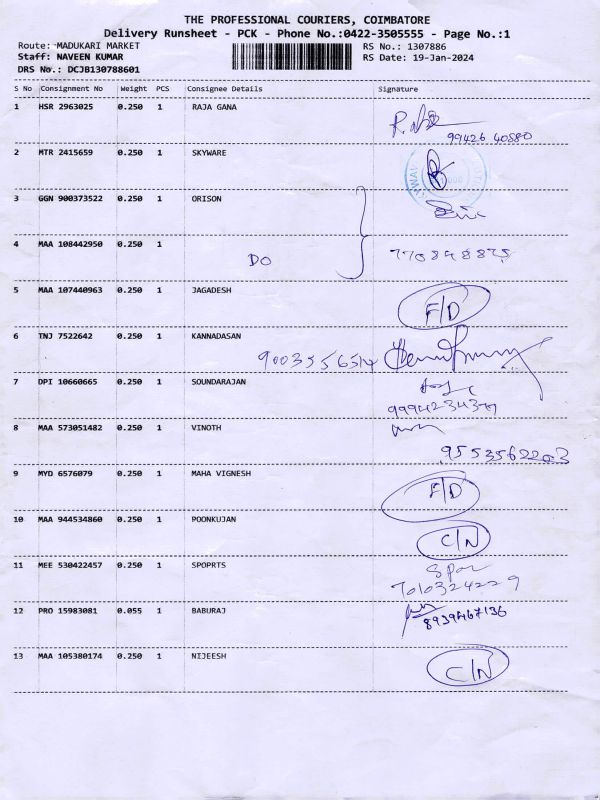 THE PROFESSIONAL COURIERS, COIMBATORE
Delivery Runsheet - PCK - Phone No.:0422-3505555 - Page No.:1
Route: MADUKARI MARKET RS No.: 1307886
Staff: NAVEEN KUMAR RS Date: 19-Jan-2024
DRS No.: DCJB130788601
S No Consignment No Weight PCS Consignee Details Signature
1 HSR 2963025 0.250 1 RAJA GANA
99426 40880
2 MTR 2415659 0.250 1 SKYWARE
3 GGN 900373522 0.250 1 ORISON
4 MAA 108442950 0.250 1 DO
5 MAA 107440963 0.250 1 JAGADESH F/D
6 TNJ 7522642 0.250 1 KANNADASAN
7 DPI 10660665 0.250 1 SOUNDARAJAN
8 MAA 573051482 0.250 1 VINOTH
9553562203
9 MYD 6576079 0.250 1 MAHA VIGNESH F/D
10 MAA 944534860 0.250 1 POONKUJAN C/N
11 MEE 530422457 0.250 1 SPOPRTS
7010324229
12 PRO 15983081 0.055 1 BABURAJ
8939467136
13 MAA 105380174 0.250 1 NIJEESH C/N